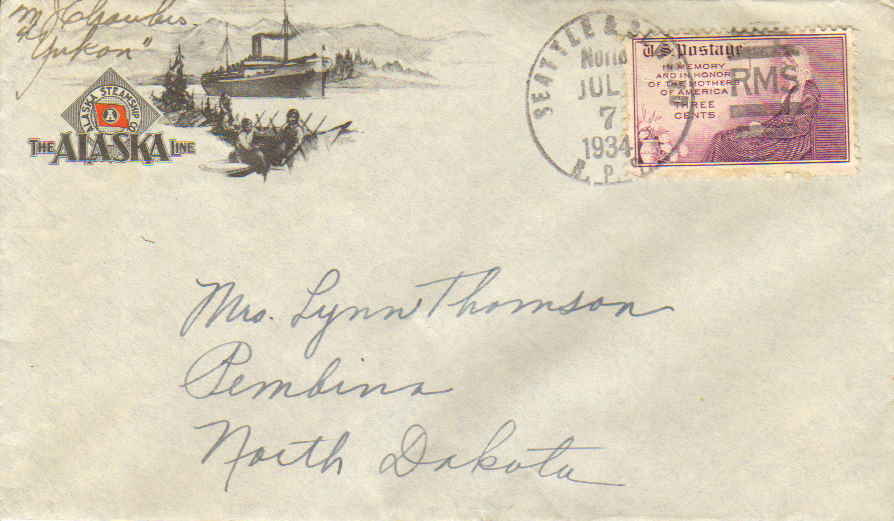 "Yukon"
ALASKA STEAMSHIP CO
A
THE ALASKA LINE
SEATTLE &
North
JUL
7
1934
R. P. O.
RMS
U.S. Postage
IN MEMORY
AND IN HONOR
OF THE MOTHERS
OF AMERICA
THREE
CENTS
Mrs. Lynn Thomson
Pembina
North Dakota